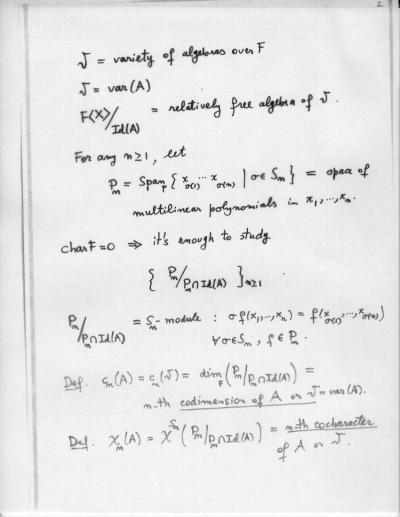 2
𝒱 = variety of algebras over F
𝒱 = var(A)
F⟨X⟩/Id(A) = relatively free algebra of 𝒱.
For any n≥1, let
P_n = Span_F { x_σ(1) ... x_σ(n) | σ ∈ S_n } = space of
multilinear polynomials in x_1, ..., x_n.
char F = 0 ⇒ it's enough to study
{ P_n/P_n∩Id(A) }_n≥1 .
P_n/P_n∩Id(A) = S_n-module : σf(x_1,...,x_n) = f(x_σ(1),...,x_σ(n))
∀σ∈S_n, f∈P_n.
Def. c_n(A) = c_n(𝒱) = dim_F (P_n/P_n∩Id(A)) =
n-th codimension of A or 𝒱 = var(A).
Def. χ_n(A) = χ^S_n (P_n/P_n∩Id(A)) = n-th cocharacter
of A or 𝒱.